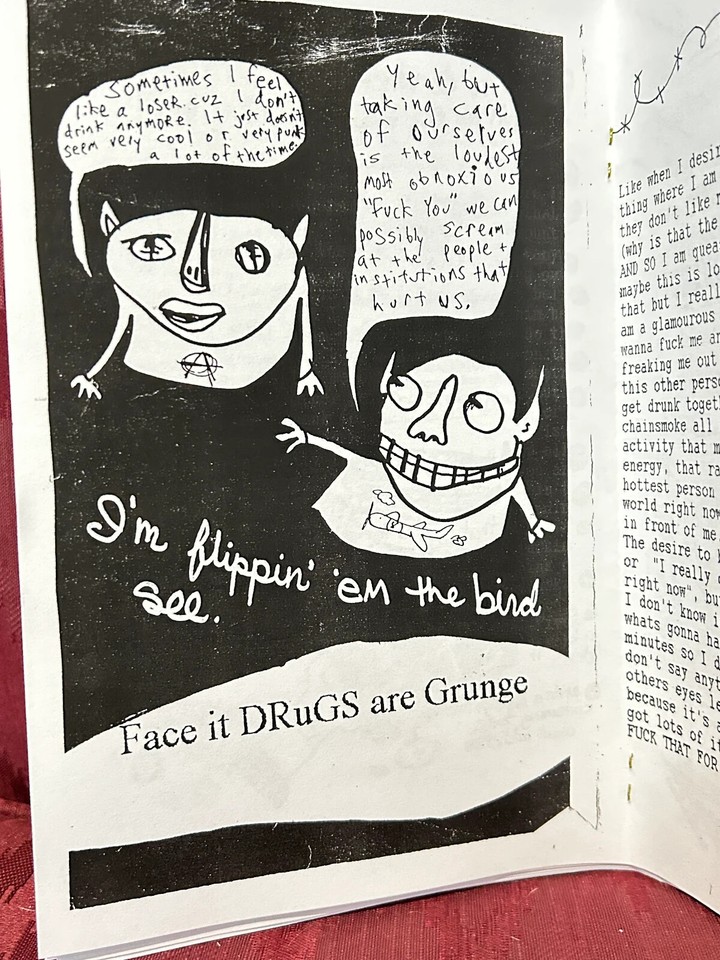 Sometimes I feel
like a loser. cuz I don't
drink anymore. It just doesn't
seem very cool or very punk
a lot of the time.
Yeah, but
taking care
of ourselves
is the loudest
most obnoxious
"Fuck You" we can
possibly scream
at the people +
institutions that
hurt us.
I'm flippin' 'em the bird
see.
Face it DRuGS are Grunge
Like when I desir
thing where I am
they don't like
(why is that the
AND SO I am quea
maybe this is lo
that but I reall
am a glamourous
wanna fuck me an
freaking me out
this other pers
get drunk toget
chainsmoke all
activity that m
energy, that ra
hottest person
world right now
in front of me
The desire to
or "I really
right now", bu
I don't know i
whats gonna ha
minutes so I d
don't say anyt
others eyes le
because it's a
got lots of it
FUCK THAT FOR